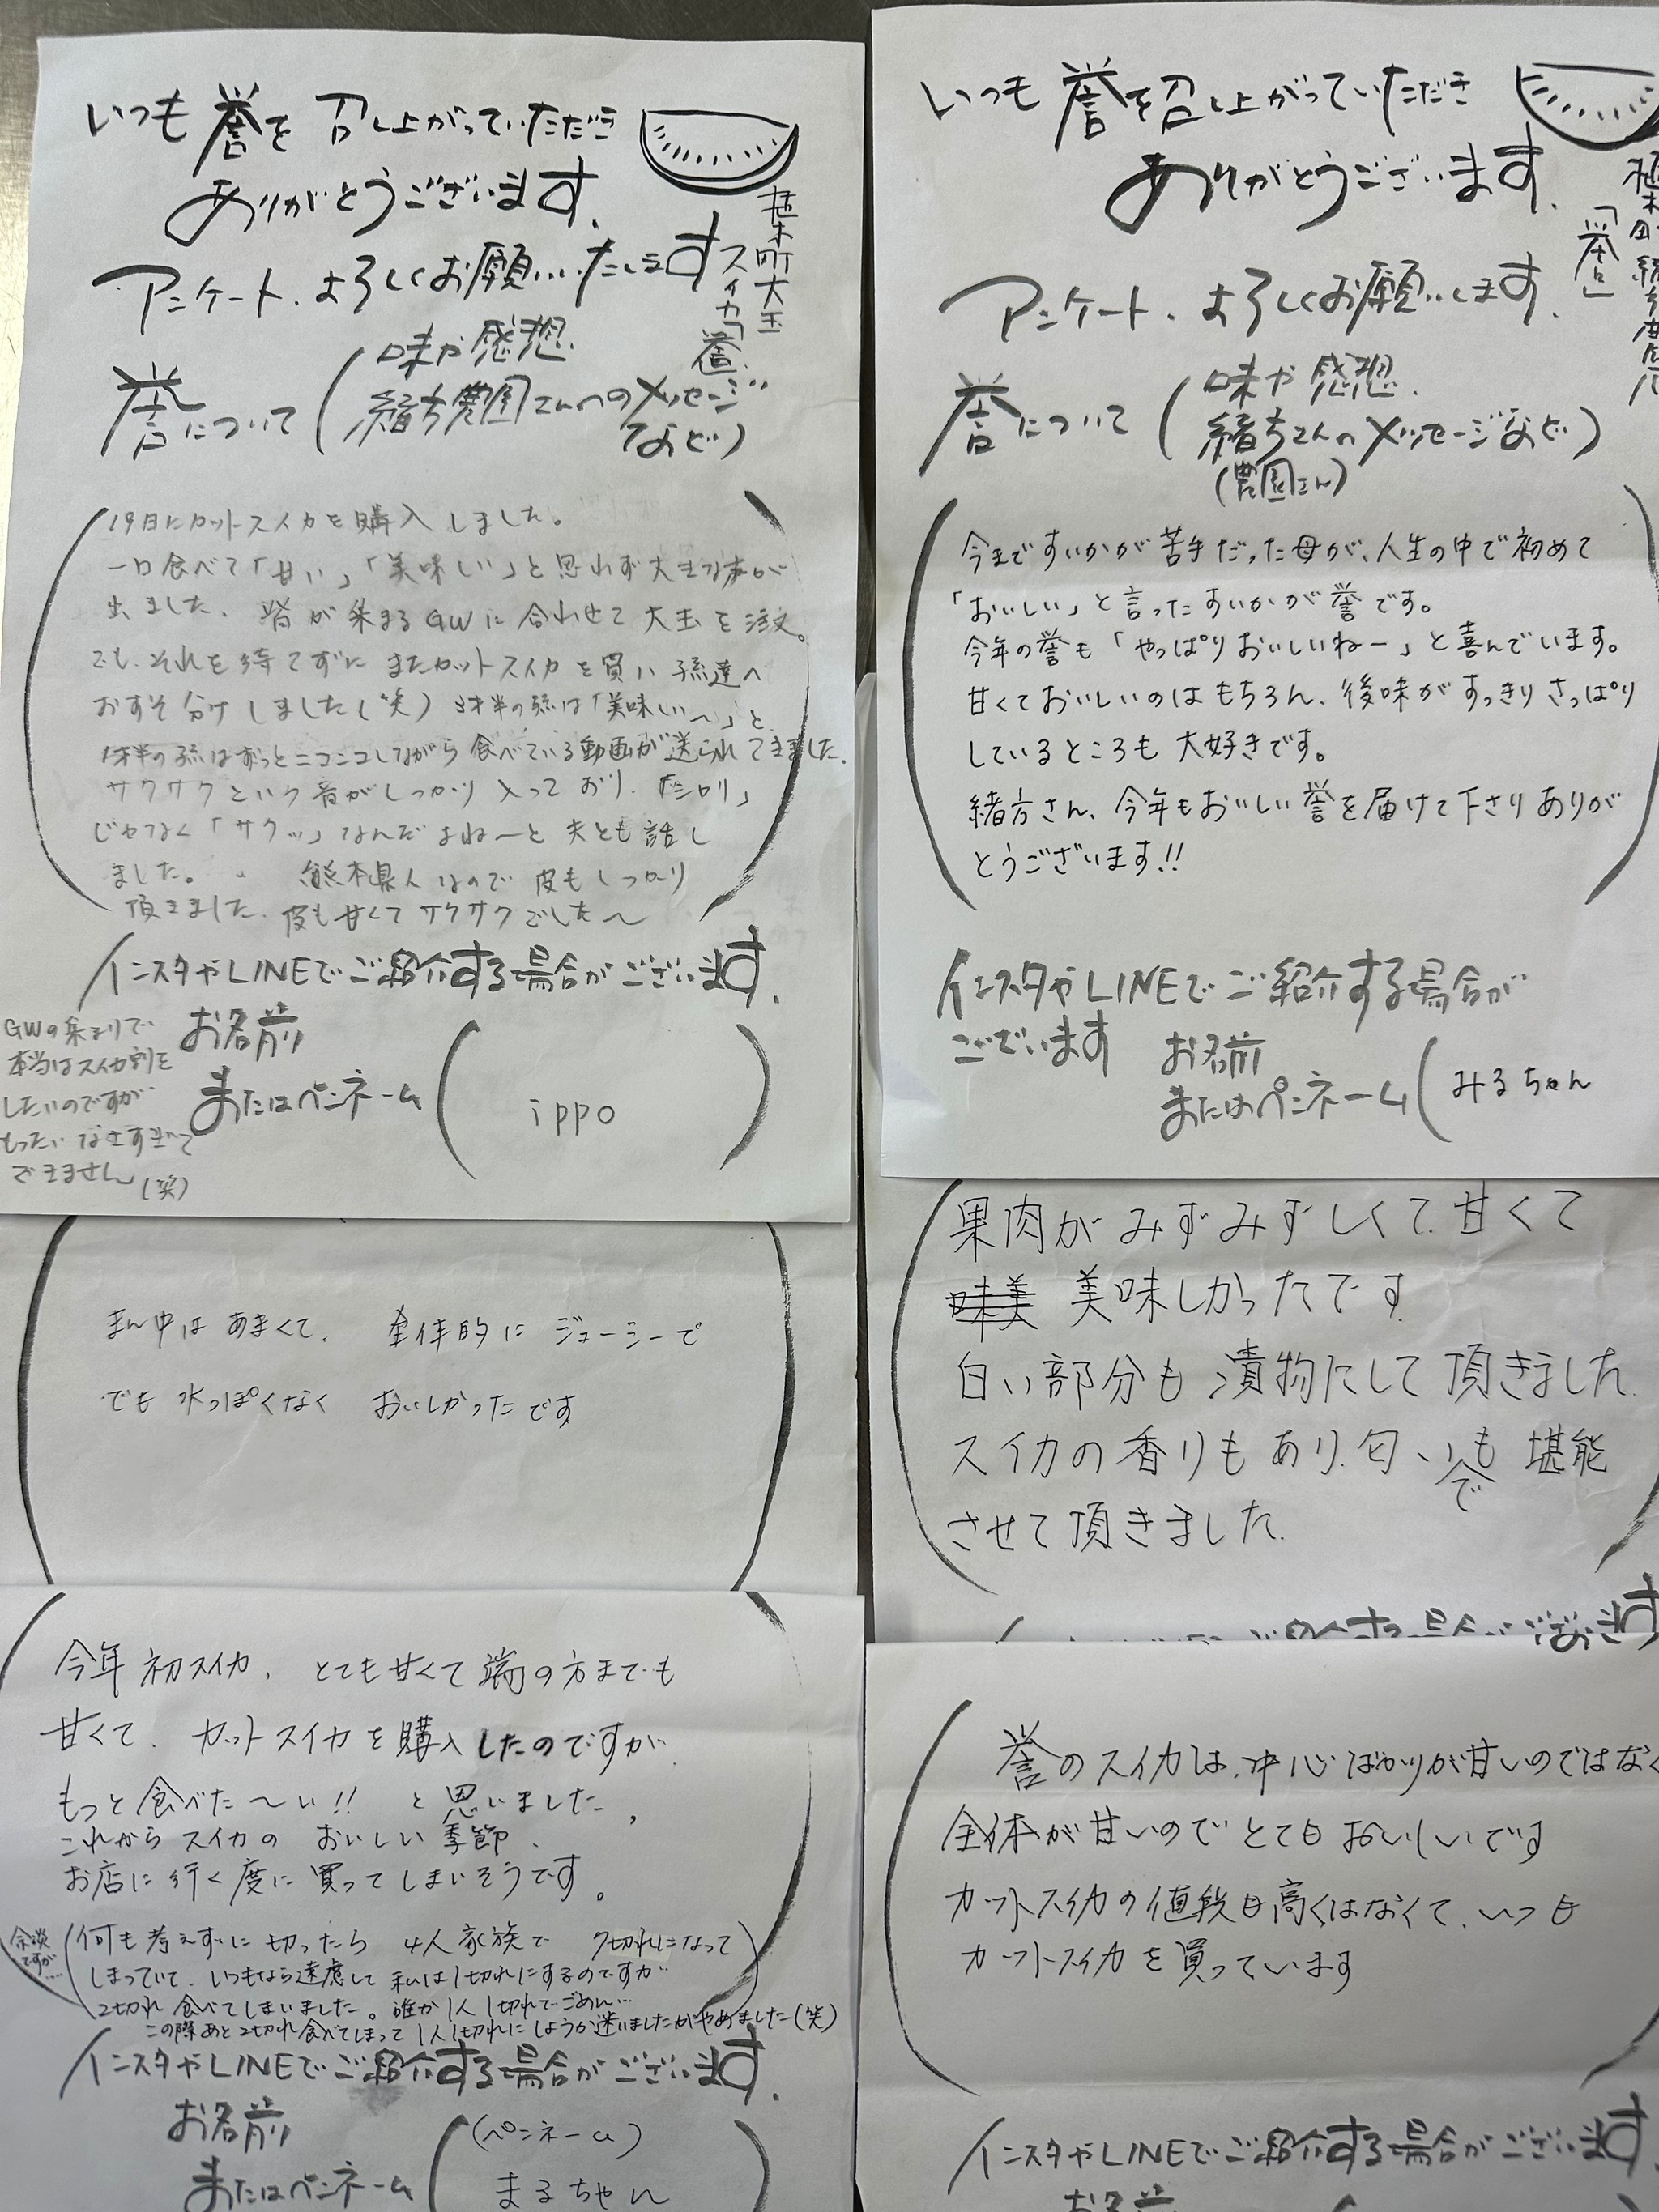 いつも 誉を 召し上がっていただき
ありがとうございます.
アンケート.よろしくお願いいたします
植木町大玉
スイカ「誉」
誉について
味や感想
緒方農園さんへのメッセージ
など)
19日にカットスイカを購入しました。
一口食べて「甘い」「美味しい」と思わず大きな声が
出ました。皆が集まるGWに合わせて大玉を注文。
でも、それを待てずにまたカットスイカを買い孫達へ
おすそ分けしました(笑) 3才半の孫は「美味しい〜」と
1才半の孫はずっとニコニコしながら食べている動画が送られてきました.
サクサクという音がしっかり入っており、「シャリ」
じゃなく「サクッ」なんだよねーと夫とも話し
ました。 熊本県人なので皮もしっかり
頂きました.皮も甘くてサクサクでした〜
インスタやLINEでご紹介する場合がございます.
お名前
またはペンネーム
( ippo )
GWの集まりで
本当はスイカ割を
したいのですが
もったいなさすぎて
できません
(笑)
まん中は あまくて. 全体的に ジューシーで
でも 水っぽくなく おいしかったです
今年 初スイカ. とても甘くて端の方までも
甘くて. カットスイカを購入したのですが.
もっと食べた〜い!! と思いました.
これから スイカの おいしい 季節.
お店に行く度に買ってしまいそうです。
余談ですが....
(何も考えずに 切ったら 4人家族で 7切れになって
しまっていて、いつもなら遠慮して 私は1切れにするのですが
2切れ 食べてしまいました。誰か1人 1切れでごめん…
この際あと2切れ食べてしまって 1人1切れにしようか迷いましたがやめました(笑)
インスタやLINEでご紹介する場合がございます.
お名前
またはペンネーム
(ペンネーム)
まるちゃん
いつも 誉を召し上がっていただき
ありがとうございます.
アンケート.よろしくお願いします.
「誉」
誉について
味や感想.
緒方さんのメッセージなど)
(農園さん)
今まですいかが苦手だった母が、人生の中で初めて
「おいしい」と言ったすいかが誉です。
今年の誉も「やっぱりおいしいねー」と喜んでいます。
甘くておいしいのはもちろん、後味がすっきりさっぱり
しているところも大好きです。
緒方さん、今年もおいしい誉を届けて下さりありが
とうございます!!
インスタやLINEでご紹介する場合が
ございます
お名前
またはペンネーム
(みるちゃん
果肉がみずみずしくて.甘くて
美味しかったです.
白い部分も漬物にして頂きました.
スイカの香りもあり.匂いでも堪能
させて頂きました.
誉のスイカは、中心ばかりが甘いのではなく
全体が甘いのでとてもおいしいです
カットスイカの値段も高くはなくて、いつも
カットスイカを買っています
インスタやLINEでご紹介する場合がございます
お名前